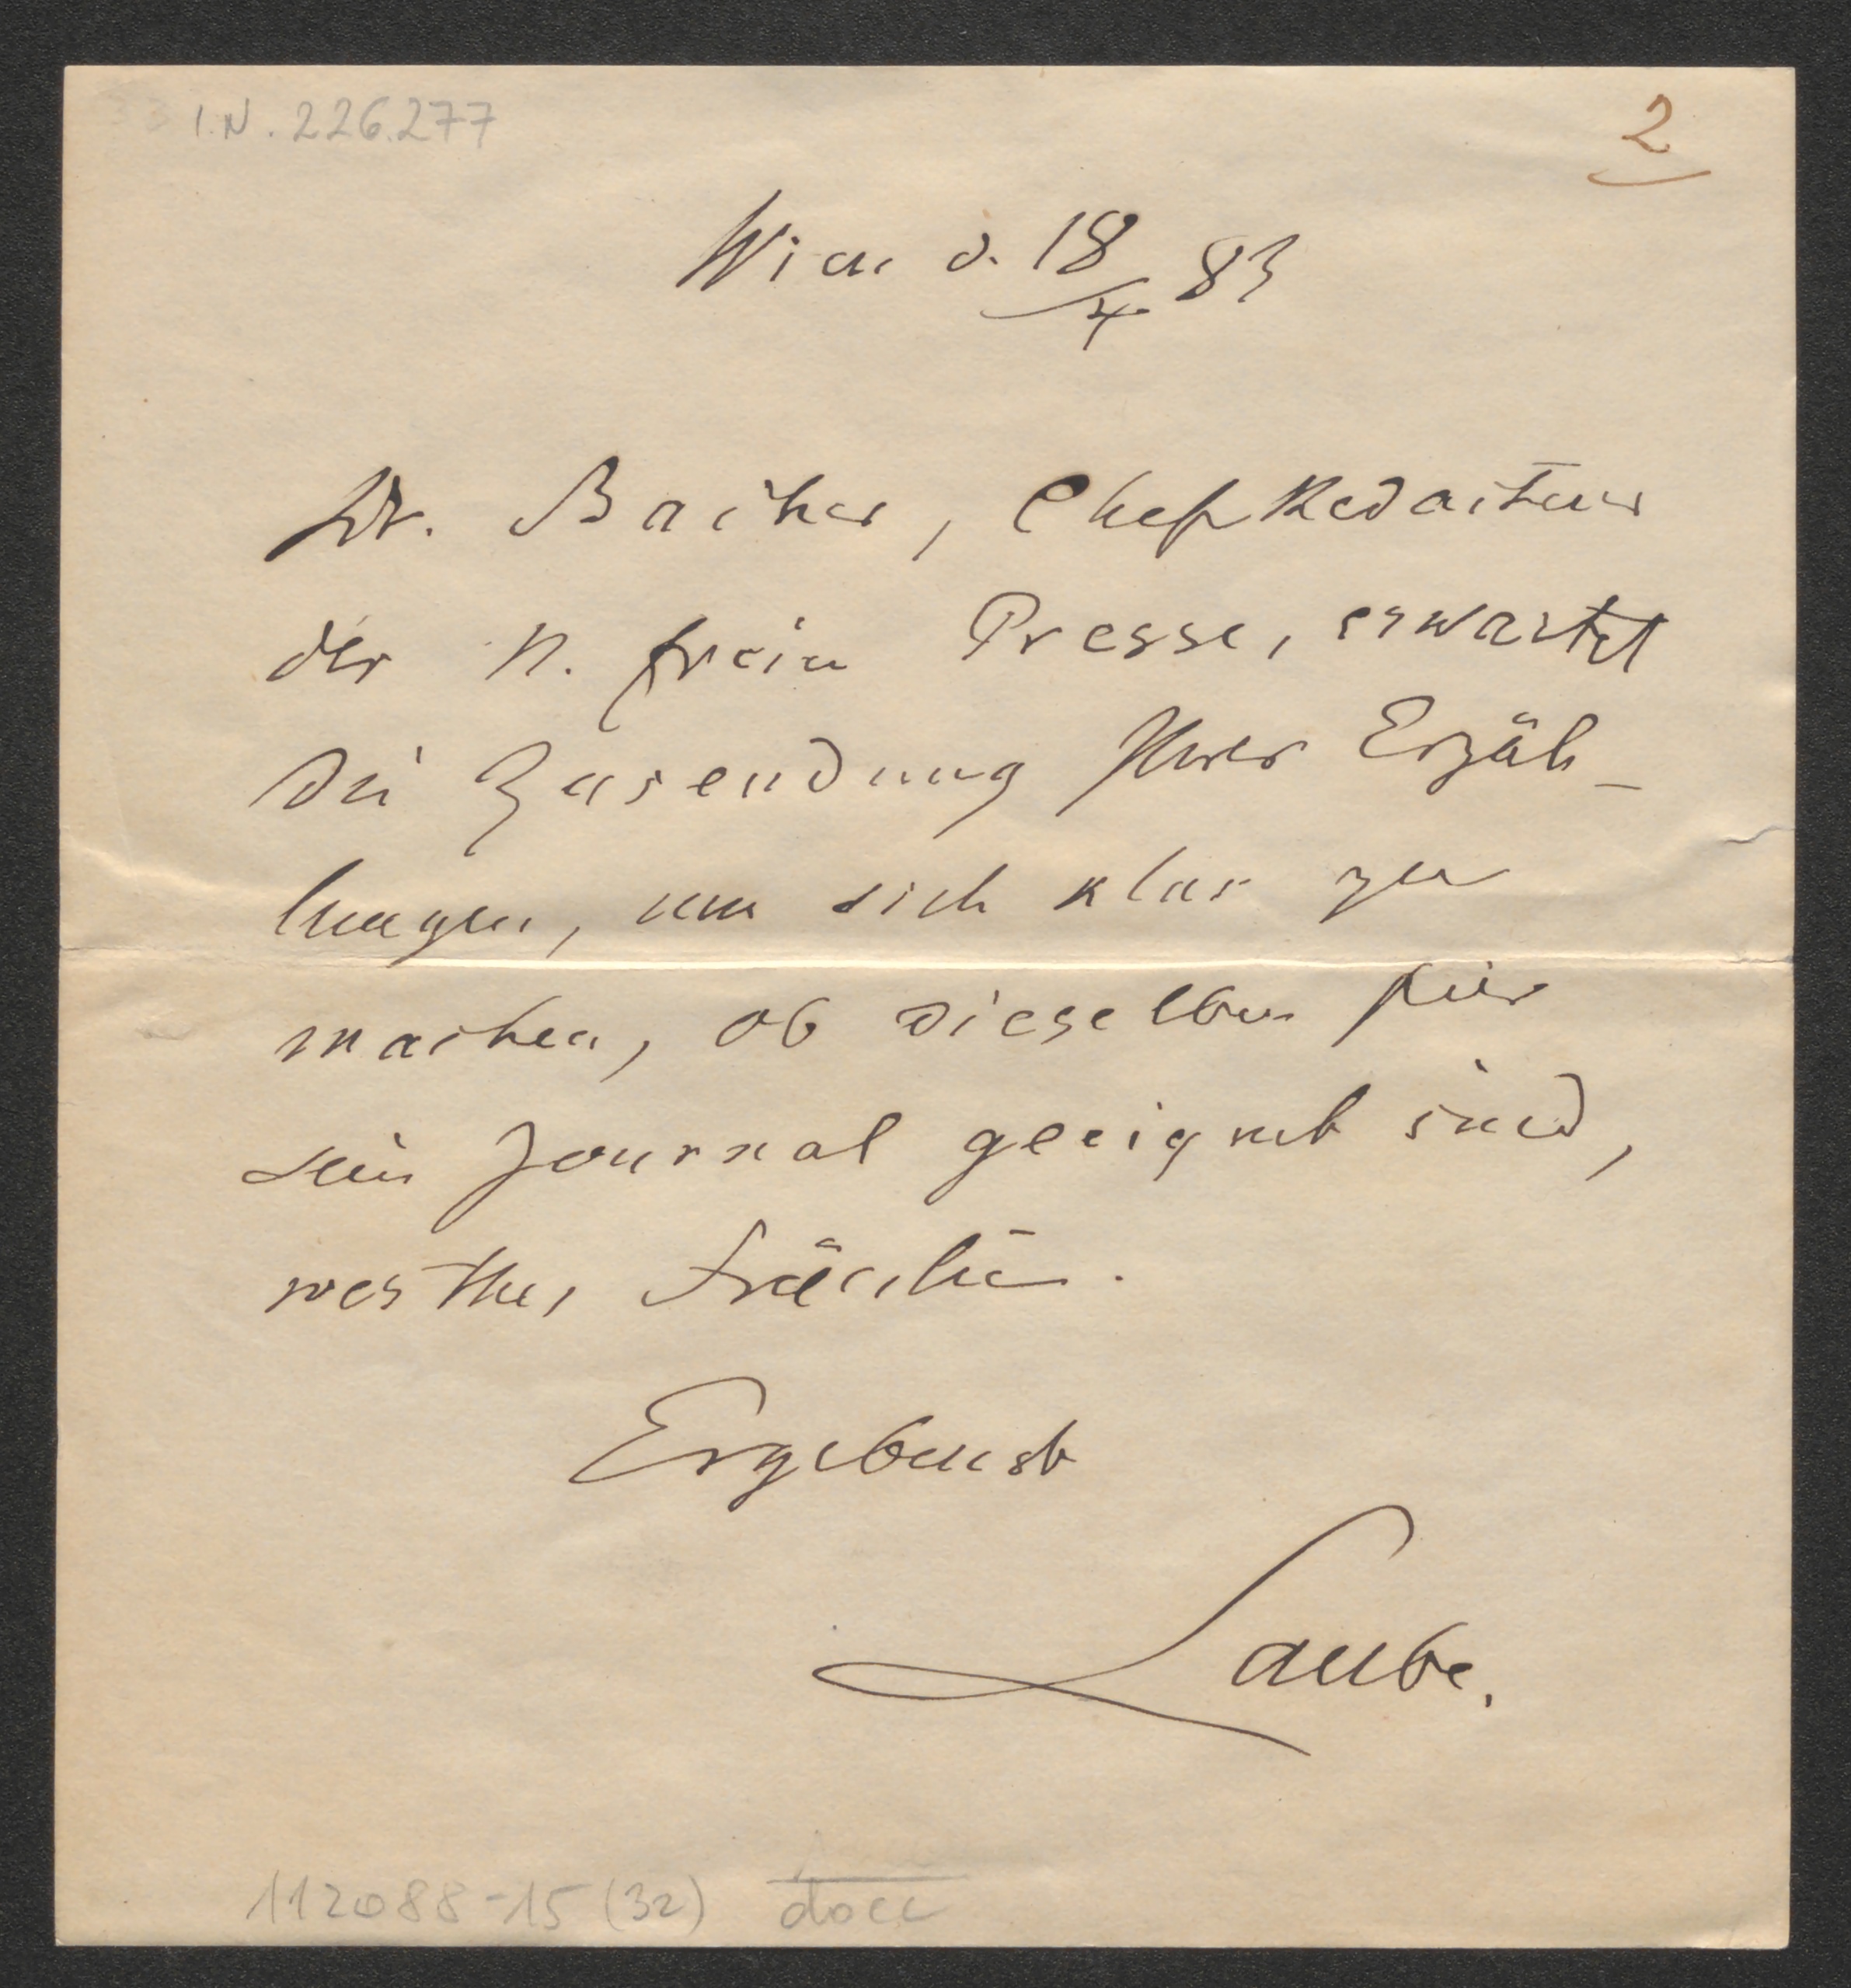 I.N. 226.277
2
Wien d. 18/4 83
Dr. Bacher, Chefredacteur
der N. freien Presse, erwartet
die Zusendung Ihrer Erzäh-
lungen, um sich klar zu
machen, ob dieselben für
sein Journal geeignet sind,
werthes Fräulein.
Ergebenst
Laube.
112088-15 (32)